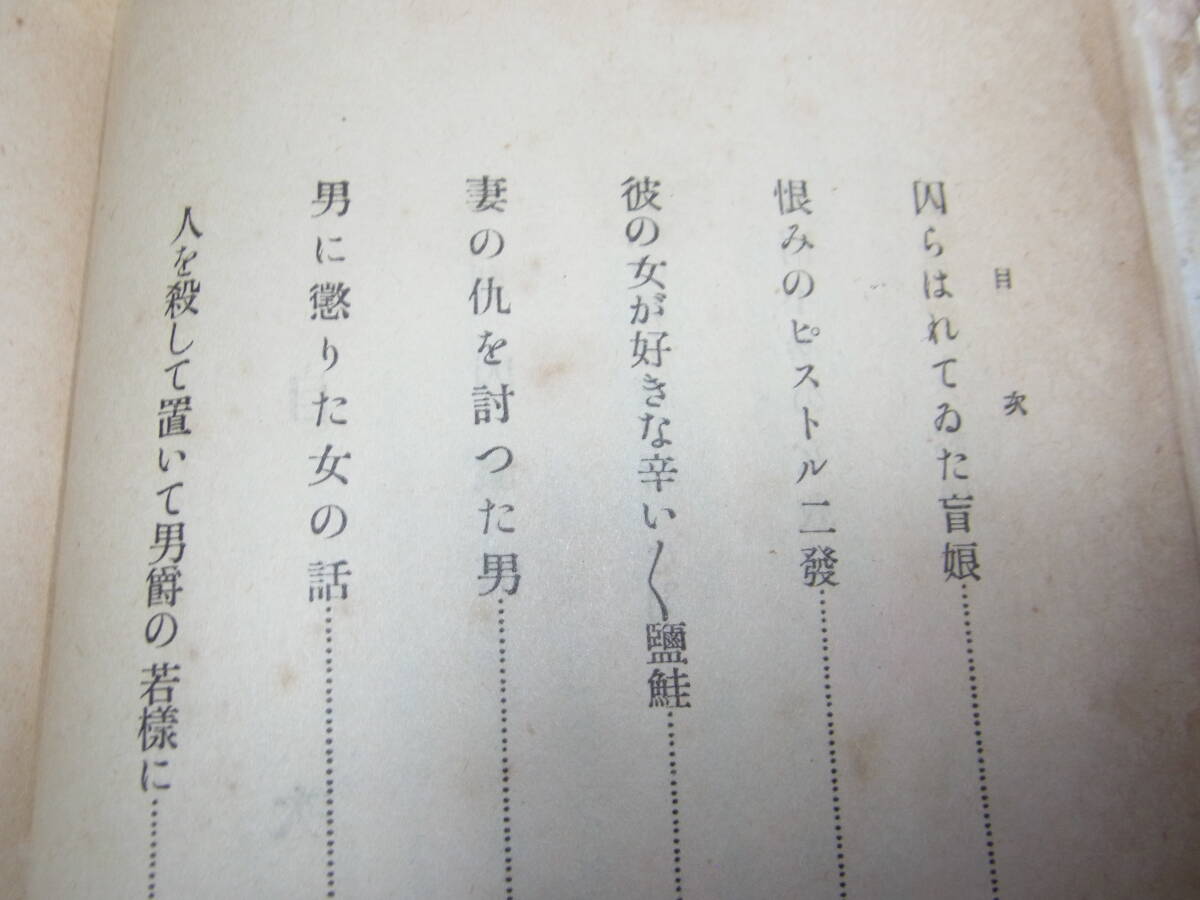 目次
囚らはれてゐた盲娘
恨みのピストル二發
彼の女が好きな辛い〳〵鹽鮭
妻の仇を討つた男
男に懲りた女の話
人を殺して置いて男爵の若樣に